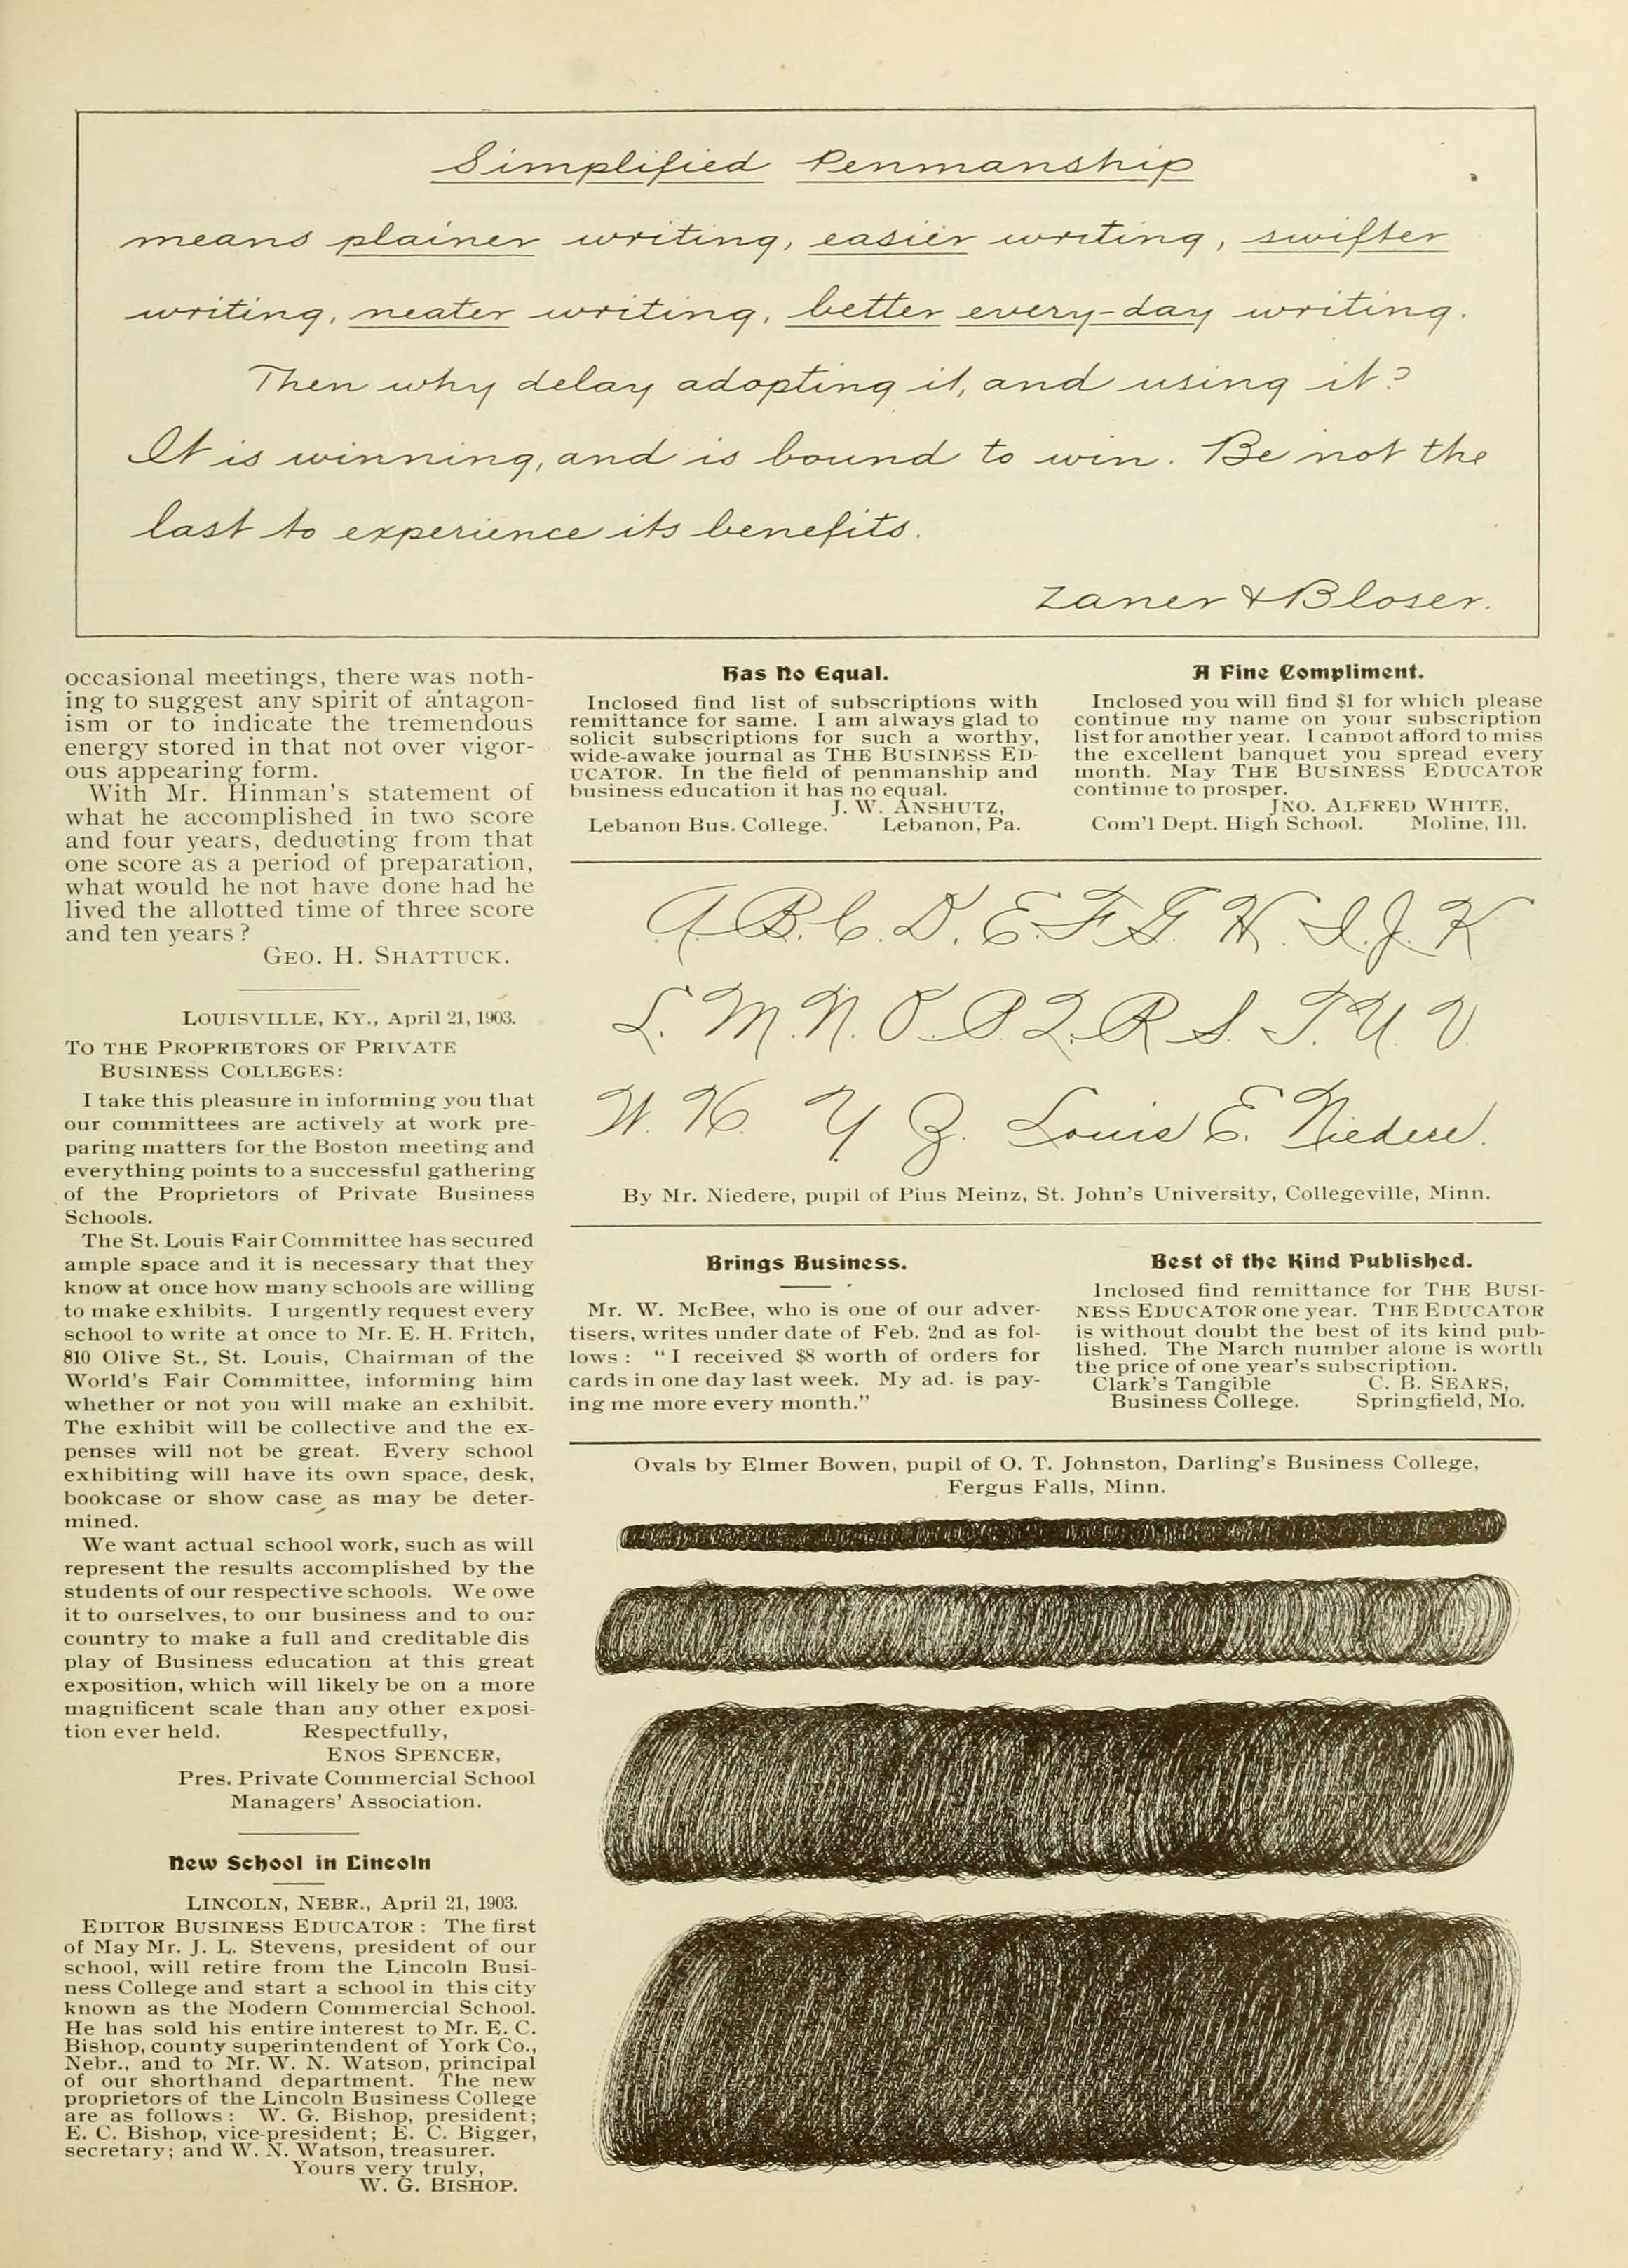 Simplified Penmanship
means plainer writing, easier writing, swifter
writing, neater writing, better every-day writing.
Then why delay adopting it, and using it?
It is winning, and is bound to win. Be not the
last to experience its benefits.
Zaner & Bloser.
occasional meetings, there was noth-
ing to suggest any spirit of antagon-
ism or to indicate the tremendous
energy stored in that not over vigor-
ous appearing form.
With Mr. Hinman's statement of
what he accomplished in two score
and four years, deducting from that
one score as a period of preparation,
what would he not have done had he
lived the allotted time of three score
and ten years?
GEO. H. SHATTUCK.
LOUISVILLE, KY., April 21, 1903.
TO THE PROPRIETORS OF PRIVATE
BUSINESS COLLEGES:
I take this pleasure in informing you that
our committees are actively at work pre-
paring matters for the Boston meeting and
everything points to a successful gathering
of the Proprietors of Private Business
Schools.
The St. Louis Fair Committee has secured
ample space and it is necessary that they
know at once how many schools are willing
to make exhibits. I urgently request every
school to write at once to Mr. E. H. Fritch,
810 Olive St., St. Louis, Chairman of the
World's Fair Committee, informing him
whether or not you will make an exhibit.
The exhibit will be collective and the ex-
penses will not be great. Every school
exhibiting will have its own space, desk,
bookcase or show case as may be deter-
mined.
We want actual school work, such as will
represent the results accomplished by the
students of our respective schools. We owe
it to ourselves, to our business and to our
country to make a full and creditable dis
play of Business education at this great
exposition, which will likely be on a more
magnificent scale than any other exposi-
tion ever held. Respectfully,
ENOS SPENCER,
Pres. Private Commercial School
Managers' Association.
New School in Lincoln
LINCOLN, NEBR., April 21, 1903.
EDITOR BUSINESS EDUCATOR: The first
of May Mr. J. L. Stevens, president of our
school, will retire from the Lincoln Busi-
ness College and start a school in this city
known as the Modern Commercial School.
He has sold his entire interest to Mr. E. C.
Bishop, county superintendent of York Co.,
Nebr., and to Mr. W. N. Watson, principal
of our shorthand department. The new
proprietors of the Lincoln Business College
are as follows: W. G. Bishop, president;
E. C. Bishop, vice-president; E. C. Bigger,
secretary; and W. N. Watson, treasurer.
Yours very truly,
W. G. BISHOP.
Has No Equal.
Inclosed find list of subscriptions with
remittance for same. I am always glad to
solicit subscriptions for such a worthy,
wide-awake journal as THE BUSINESS ED-
UCATOR. In the field of penmanship and
business education it has no equal.
J. W. ANSHUTZ,
Lebanon Bus. College. Lebanon, Pa.
A Fine Compliment.
Inclosed you will find $1 for which please
continue my name on your subscription
list for another year. I cannot afford to miss
the excellent banquet you spread every
month. May THE BUSINESS EDUCATOR
continue to prosper.
JNO. ALFRED WHITE,
Com'l Dept. High School. Moline, Ill.
A. B. C. D. E. F. G. H. I. J. K
L. M. N. O. P. Q. R S. T. U. V.
W. X. Y Z. Louis E. Niedere.
By Mr. Niedere, pupil of Pius Meinz, St. John's University, Collegeville, Minn.
Brings Business.
Mr. W. McBee, who is one of our adver-
tisers, writes under date of Feb. 2nd as fol-
lows: "I received $8 worth of orders for
cards in one day last week. My ad. is pay-
ing me more every month."
Best of the Kind Published.
Inclosed find remittance for THE BUSI-
NESS EDUCATOR one year. THE EDUCATOR
is without doubt the best of its kind pub-
lished. The March number alone is worth
the price of one year's subscription.
Clark's Tangible C. B. SEARS,
Business College. Springfield, Mo.
Ovals by Elmer Bowen, pupil of O. T. Johnston, Darling's Business College,
Fergus Falls, Minn.